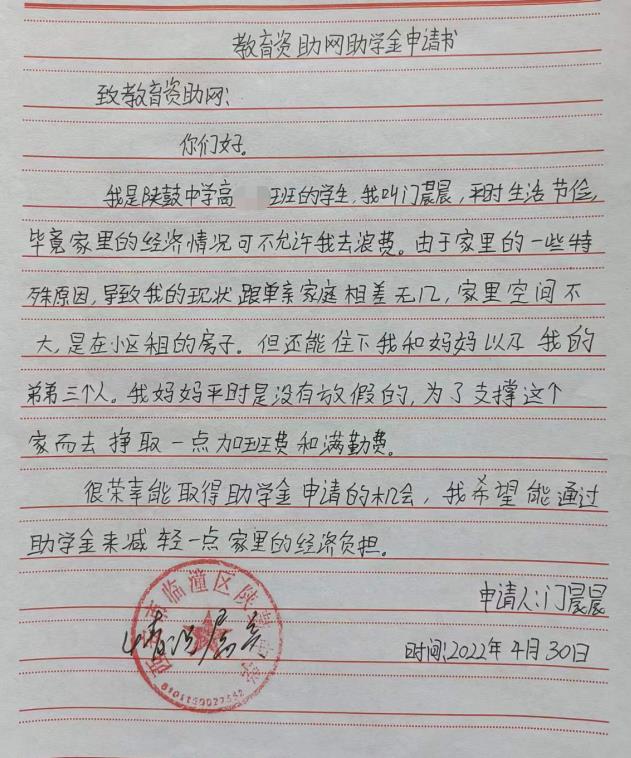 教育资助网助学金申请书
致教育资助网:
你们好。
我是陕鼓中学高 班的学生,我叫门晨晨,平时生活节俭,
毕竟家里的经济情况可不允许我去浪费。由于家里的一些特
殊原因,导致我的现状跟单亲家庭相差无几,家里空间不
大,是在小区租的房子。但还能住下我和妈妈以及我的
弟弟三个人。我妈妈平时是没有放假的,为了支撑这个
家而去挣取一点加班费和满勤费。
很荣幸能取得助学金申请的机会,我希望能通过
助学金来减轻一点家里的经济负担。
申请人:门晨晨
时间:2022年4月30日
情况属实
西安市临潼区陕鼓中学